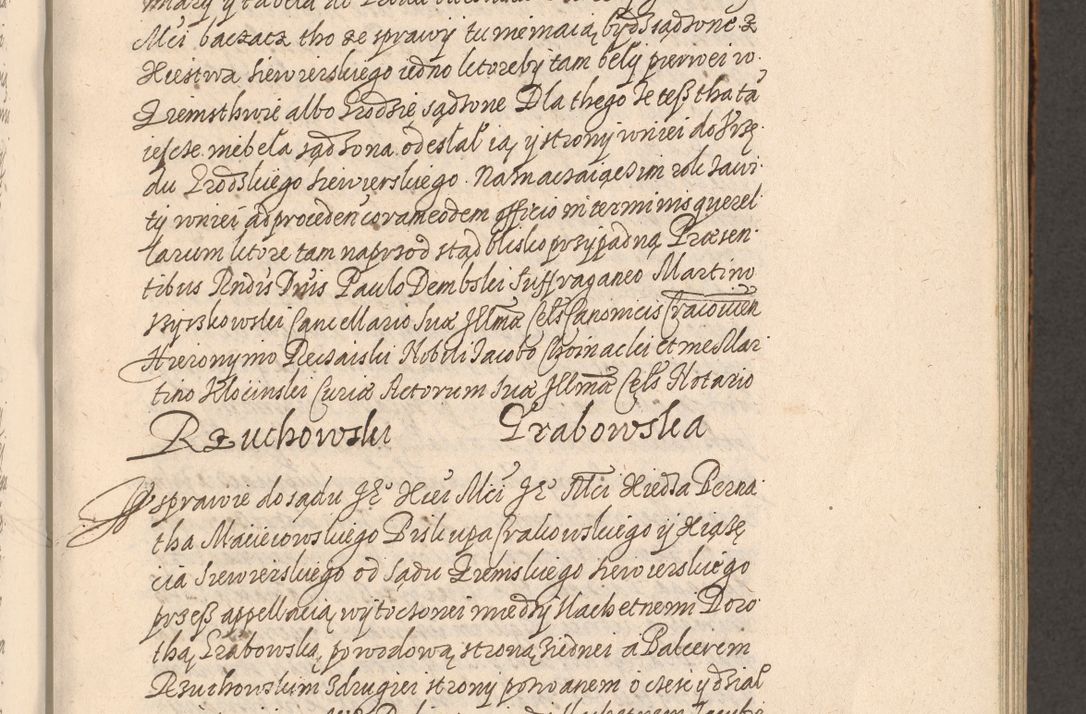 Mci baczacz tho ze sprawy tu niemaią bydz sądzone z
Xiestwa Siewierskiego iedno ktoreby tam bely pierwei w
Ziemsthwie albo Grodzie sądzone Dla thego że tesz tha ta
iescze niebela sądzona odeslal ią y strony wniei do Vrzę
du Grodskiego Siewierskiego. Naznaczaiącz im rok zawi
ty wniei ad procedend coram eodem officio in terminis querel
larum ktore tam naprzod stąd blisko przypadną Præsen
tibus Rndis Dnis Paulo Dembski Suffraganeo Martino
Kyrzkowski Cancellario Suæ Jllmæ Cels Canonicis Cracouien
Hieronymo Reczaiski Nobili Jacobo Choinacki et me Mar
tino Kłocinski Curiæ Actorum Suæ Jllmæ Cels Notario
Rzuchowski Grabowska
W sprawie do sądu Je° Xiei Mci Je° Mci Xiedza Berna
tha Macieiowskiego Biskupa Crakowskiego y Xiąże
cia Siewierskiego od Sądu Ziemskiego Siewierskiego
przesz appellacią wytoczonei miedzy slachetnemi Doro
thą Grabowską powodową stroną ziednei a Balcerem
Rzuchowskim zdrugiei strony pozwanem o czesc y dzial